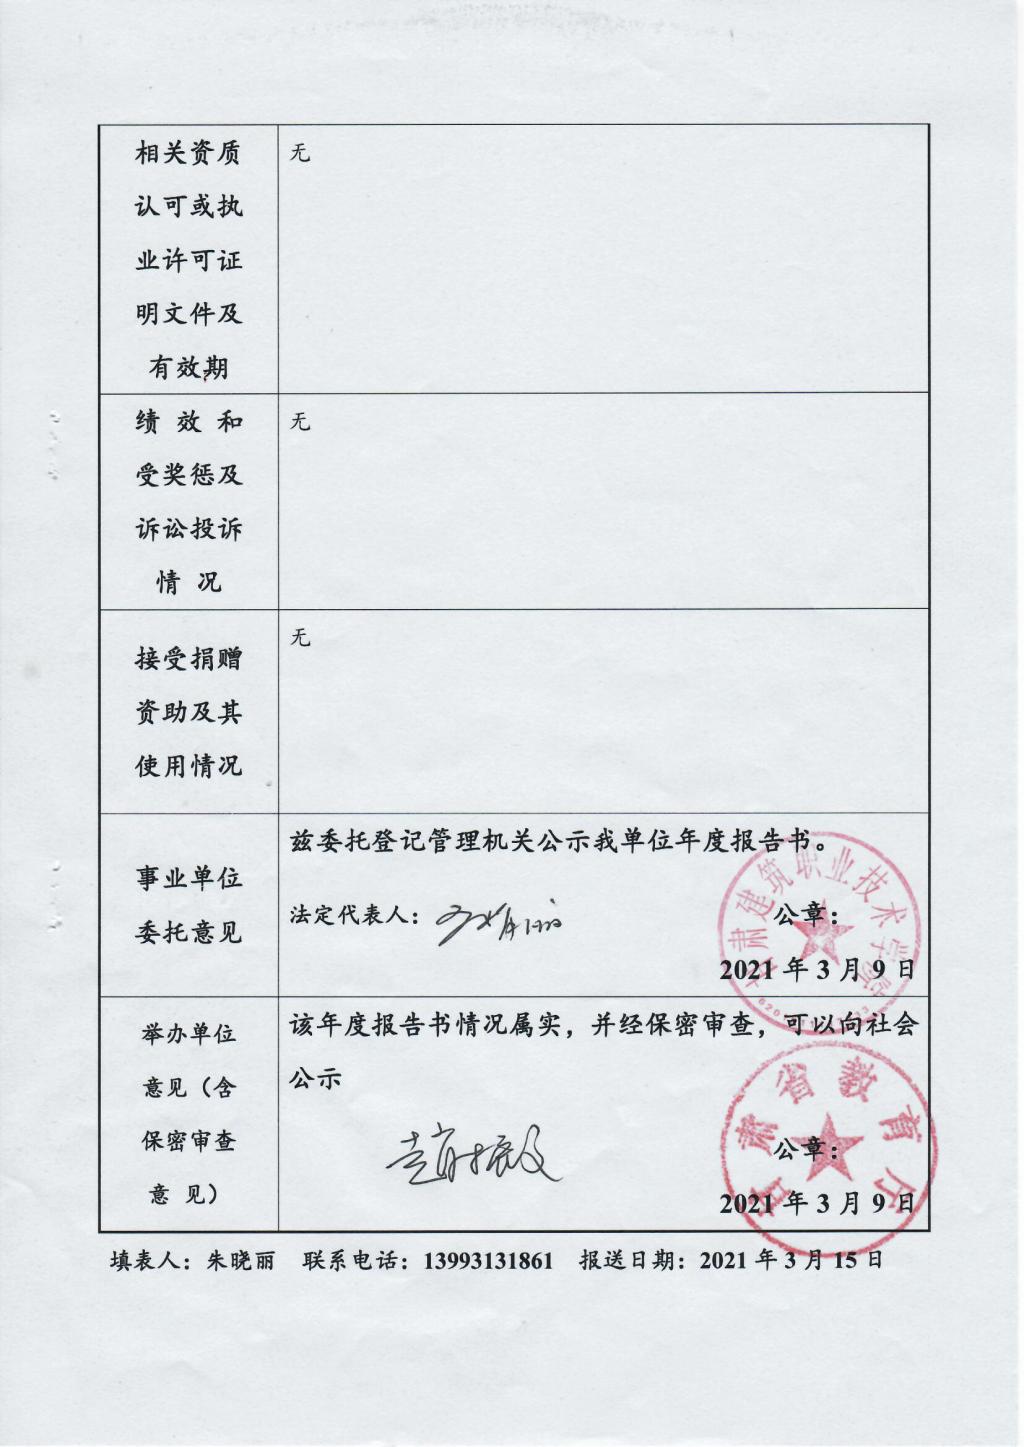 相关资质
认可或执
业许可证
明文件及
有效期
无
绩 效 和
受奖惩及
诉讼投诉
情 况
无
接受捐赠
资助及其
使用情况
无
事业单位
委托意见
兹委托登记管理机关公示我单位年度报告书。
法定代表人：
公章：
2021 年 3 月 9 日
甘肃建筑职业技术学院
举办单位
意见（含
保密审查
意 见）
该年度报告书情况属实，并经保密审查，可以向社会
公示
公章：
2021 年 3 月 9 日
甘肃省教育厅
填表人：朱晓丽 联系电话：13993131861 报送日期：2021 年 3 月 15 日